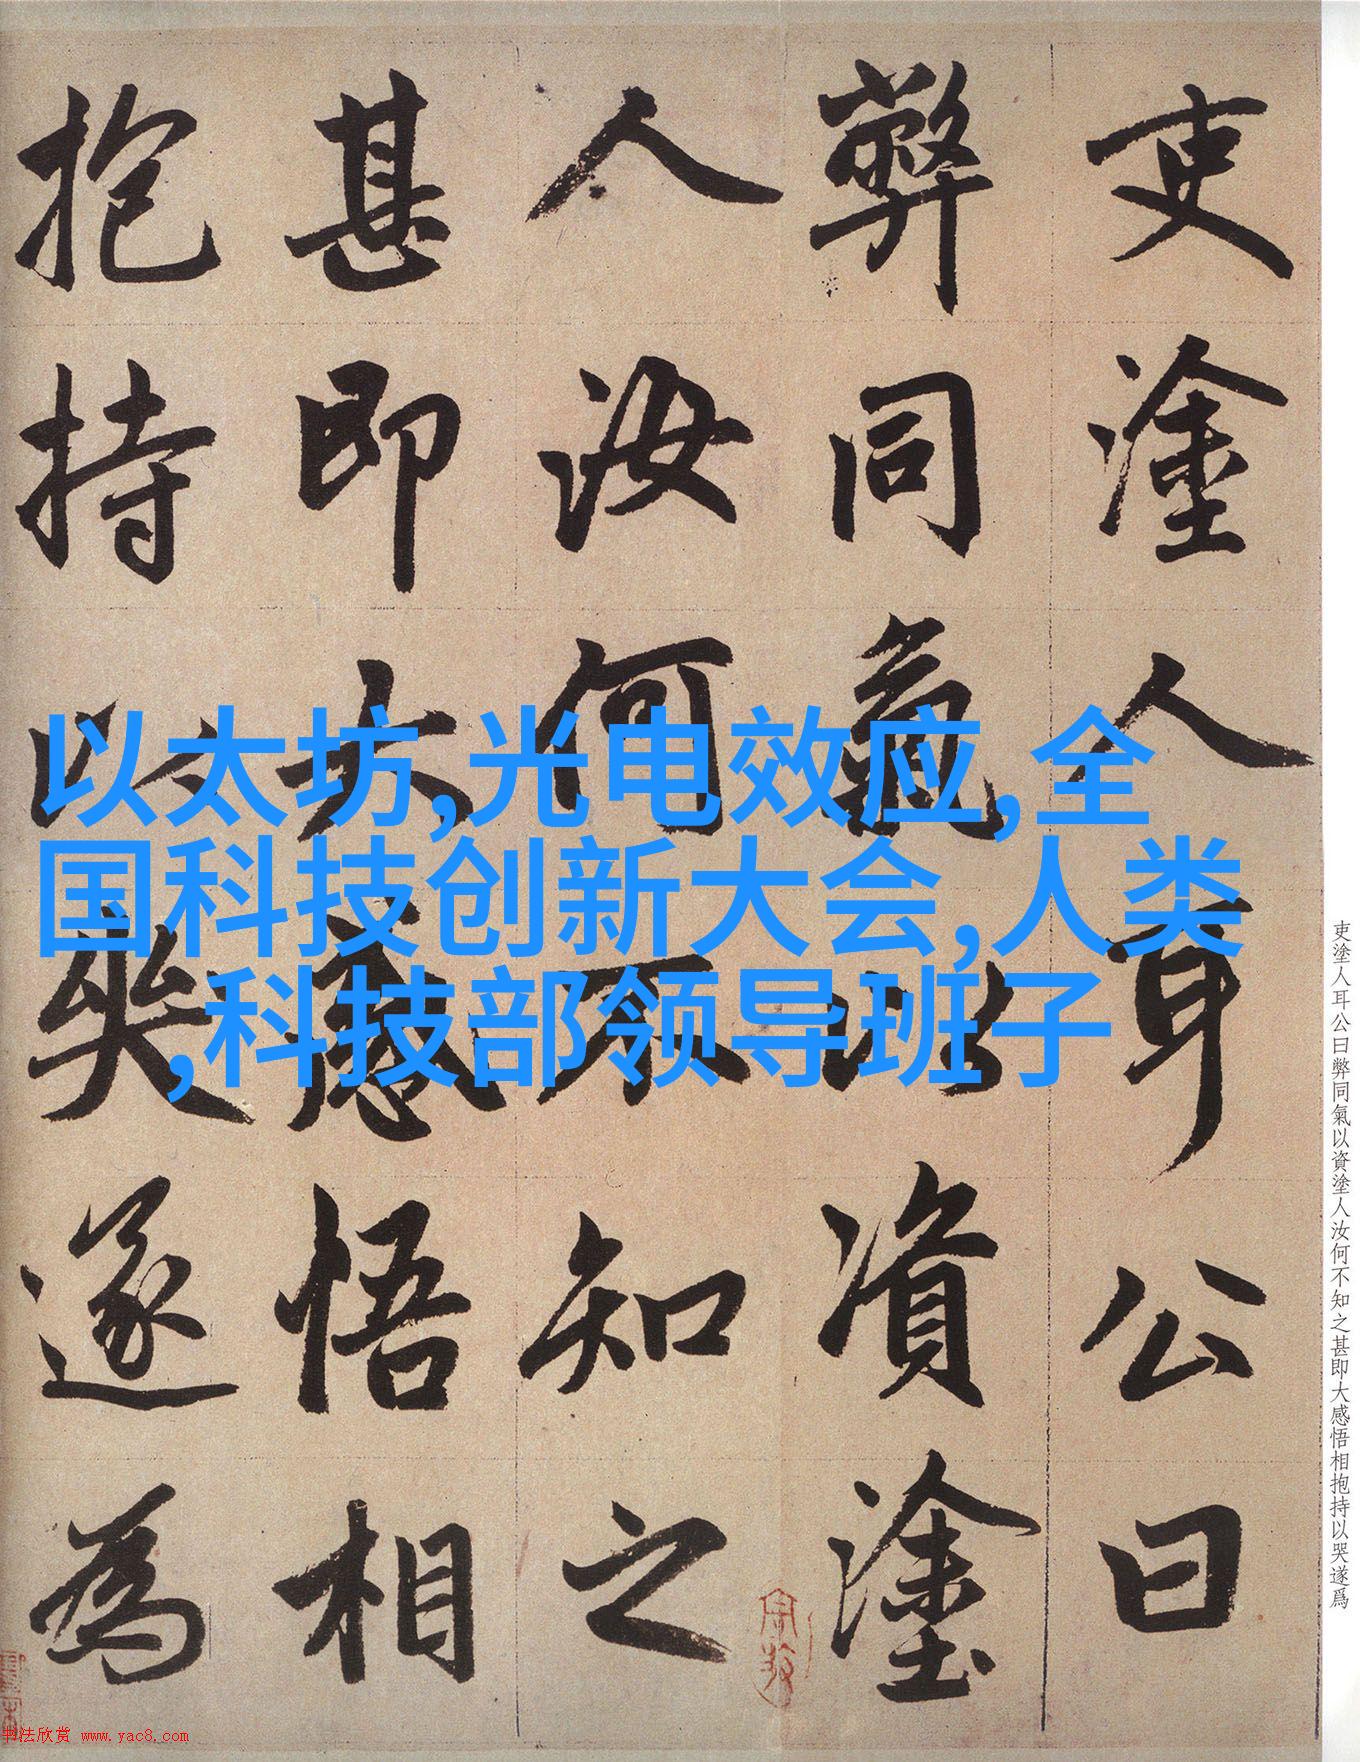 吏塗人耳公曰
弊同氣以資塗
人汝何不知之
甚即大感悟相
抱持以哭遂為
以太坊,光电效应,全
国科技创新大会,人类
,科技部领导班子
吏塗人耳公曰弊同氣以資塗人汝何不知之甚即大感悟相抱持以哭遂爲
书法欣赏 www.yac8.com